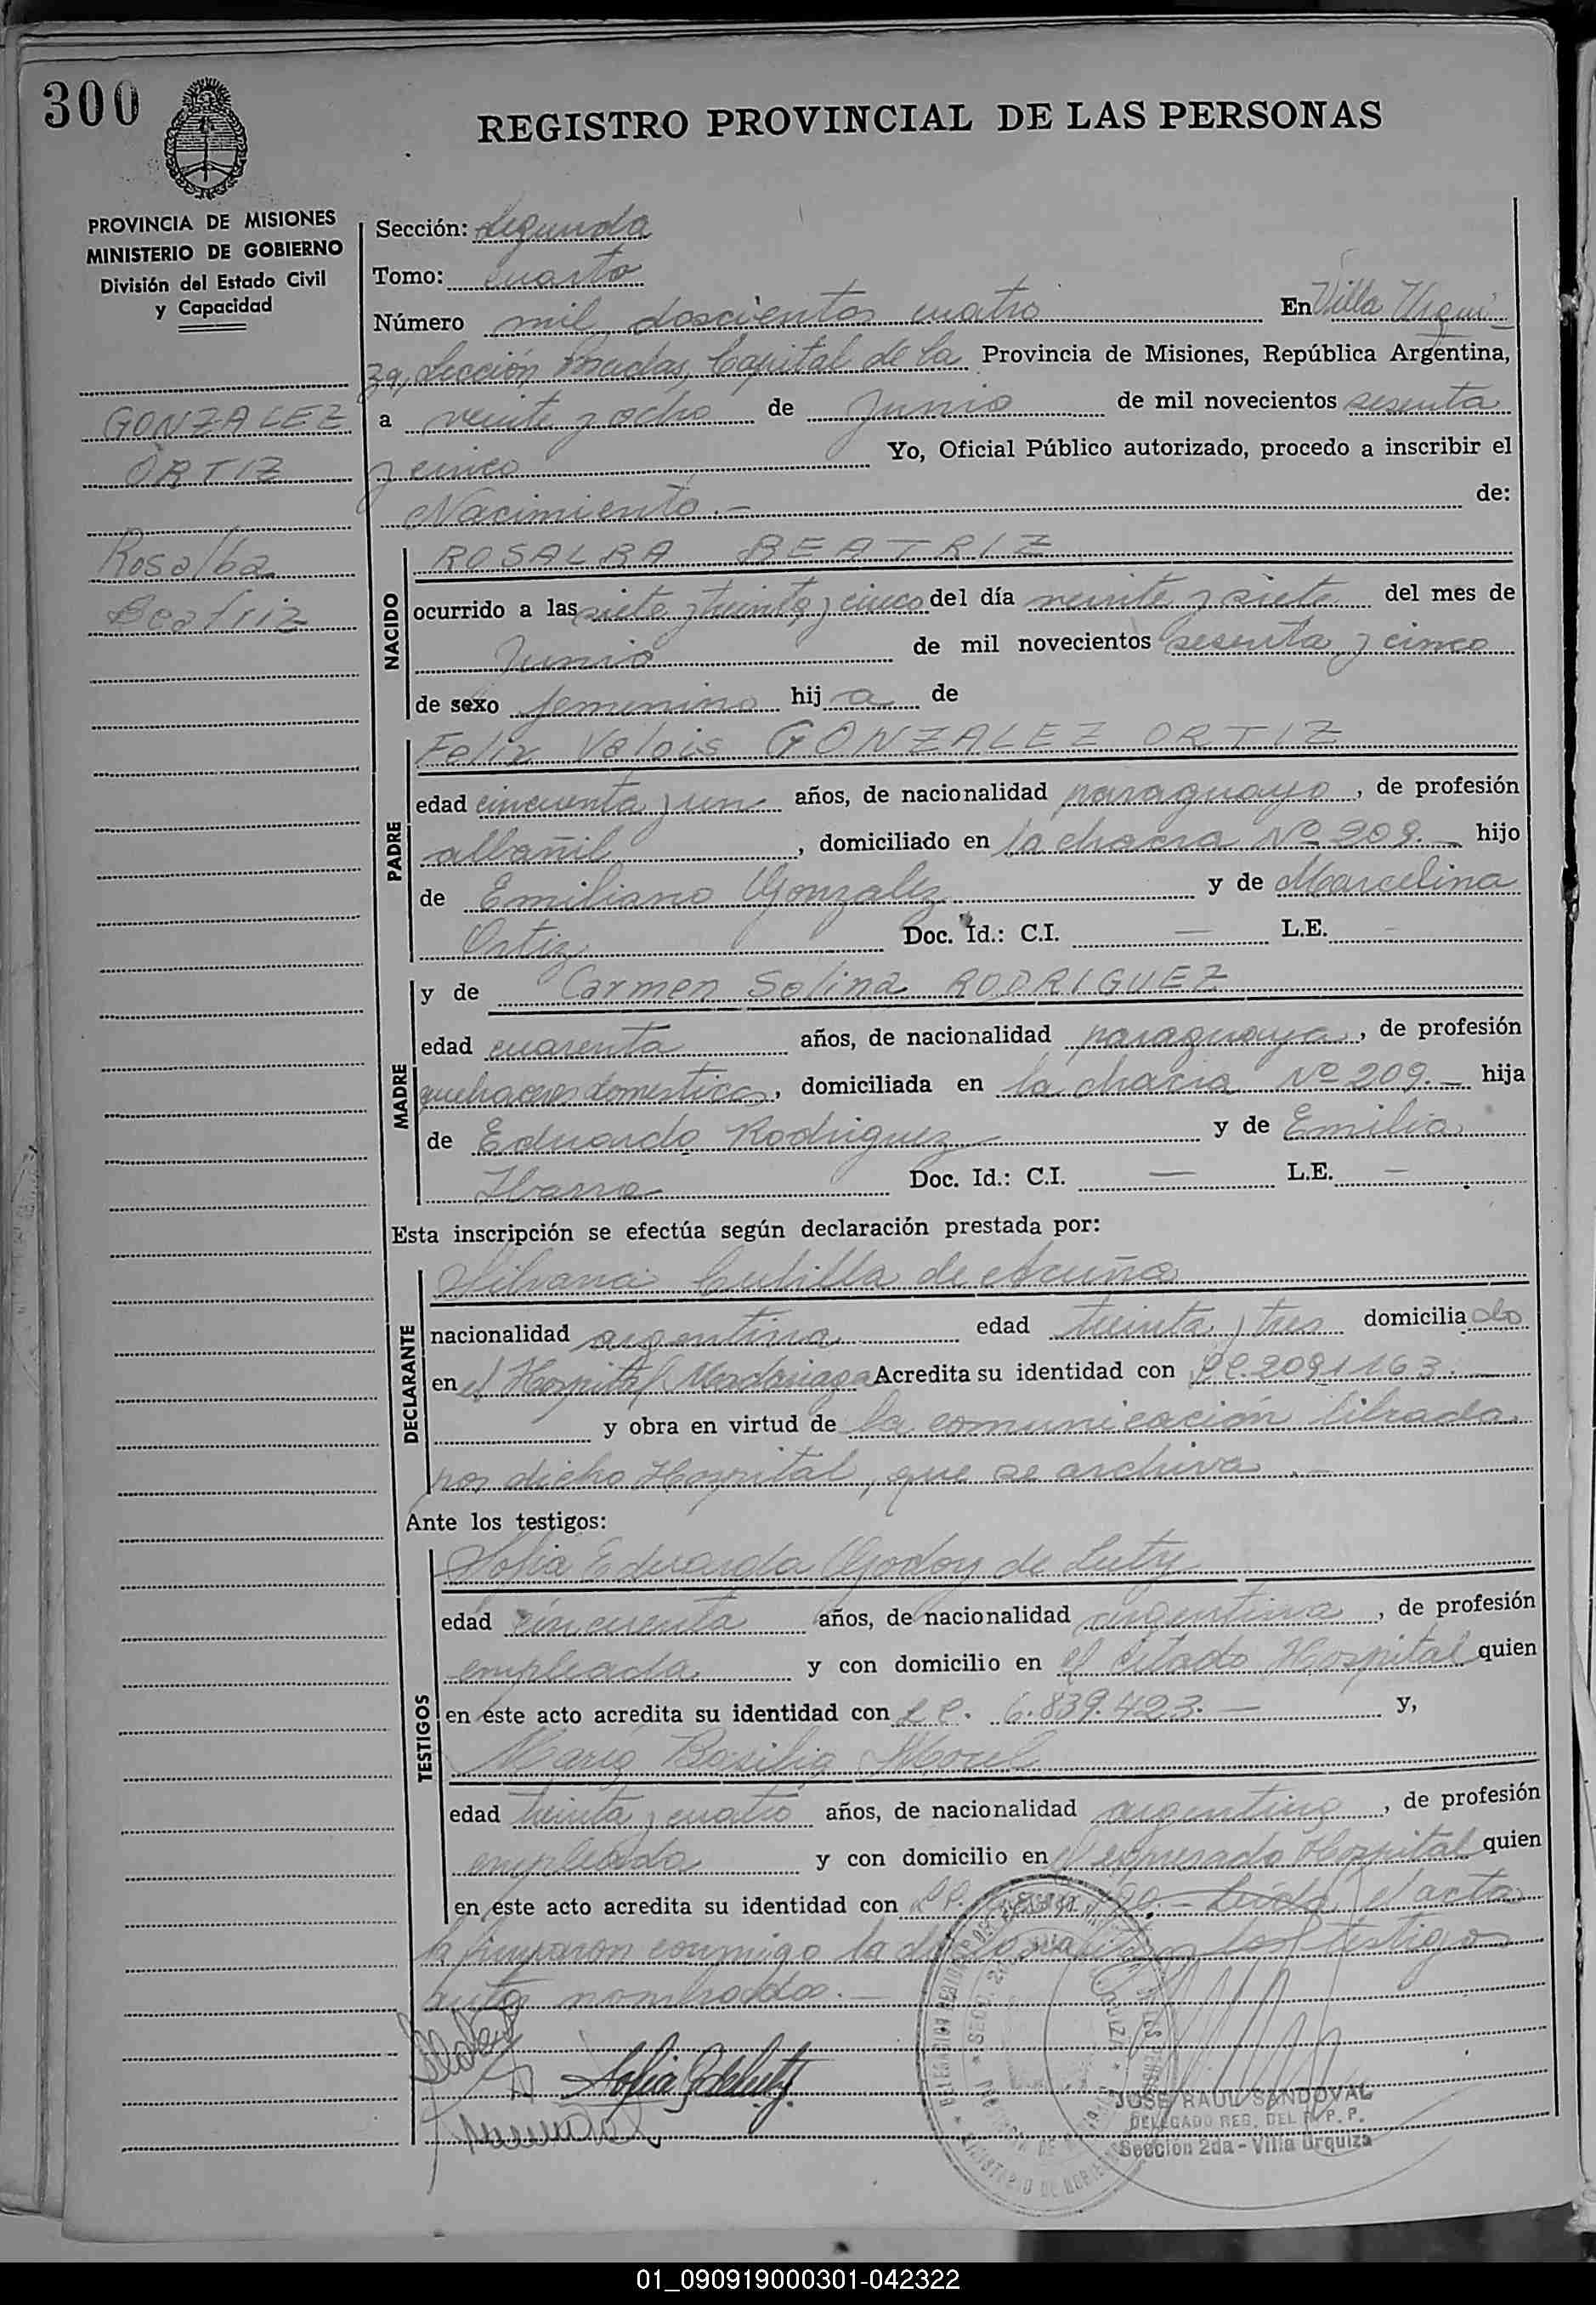 300
REGISTRO PROVINCIAL DE LAS PERSONAS
PROVINCIA DE MISIONES
MINISTERIO DE GOBIERNO
División del Estado Civil
y Capacidad
GONZALEZ
ORTIZ
Rosalba
Beatriz
Sección: Segunda
Tomo: cuarto
Número mil doscientos cuatro En Villa Urqui-
za, Sección Posadas, Capital de la Provincia de Misiones, República Argentina,
a veinte y ocho de Junio de mil novecientos sesenta
y cinco Yo, Oficial Público autorizado, procedo a inscribir el
Nacimiento.- de:
NACIDO
ROSALBA BEATRIZ
ocurrido a las siete y treinta y cinco del día veinte y siete del mes de
Junio de mil novecientos sesenta y cinco
de sexo femenino hija de
PADRE
Felix Valois GONZALEZ ORTIZ
edad cincuenta y un años, de nacionalidad paraguayo, de profesión
albañil, domiciliado en la chacra Nº 209.- hijo
de Emiliano Gonzalez y de Marcelina
Ortiz Doc. Id.: C.I. — L.E. -
MADRE
y de Carmen Solina RODRIGUEZ
edad cuarenta años, de nacionalidad paraguaya, de profesión
quehaceres domesticos, domiciliada en la chacra Nº 209.- hija
de Eduardo Rodriguez y de Emilia
Ibarra Doc. Id.: C.I. — L.E. —
Esta inscripción se efectúa según declaración prestada por:
DECLARANTE
Silvana Cubilla de Acuña
nacionalidad argentina edad treinta y tres domiciliado
en el Hospital Madariaga Acredita su identidad con L.C. 2091163.
y obra en virtud de la comunicación librada
por dicho Hospital, que se archiva.-
Ante los testigos:
TESTIGOS
Sofia Eduarda Godoy de Luty
edad cincuenta años, de nacionalidad argentina, de profesión
empleada y con domicilio en el citado Hospital quien
en este acto acredita su identidad con L.C. 6.839.423.- y,
Maria Basilia Morel
edad treinta y cuatro años, de nacionalidad argentina, de profesión
empleada y con domicilio en el expresado Hospital quien
en este acto acredita su identidad con L.C. Leída el acta
la firmaron conmigo la declarante y los testigos
nombrados.-
JOSE RAUL SANDOVAL
DELEGADO REG. DEL R. P. P.
Sección 2da - Villa Urquiza
01_090919000301-042322